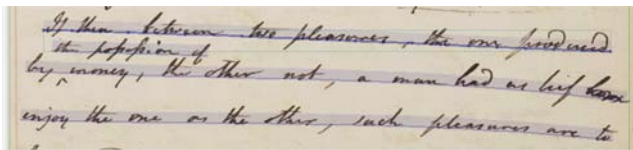 If then between two pleasures, the one produced
the possession of
by money, the other not, a man had as lief
enjoy the one as the other, such pleasures are to